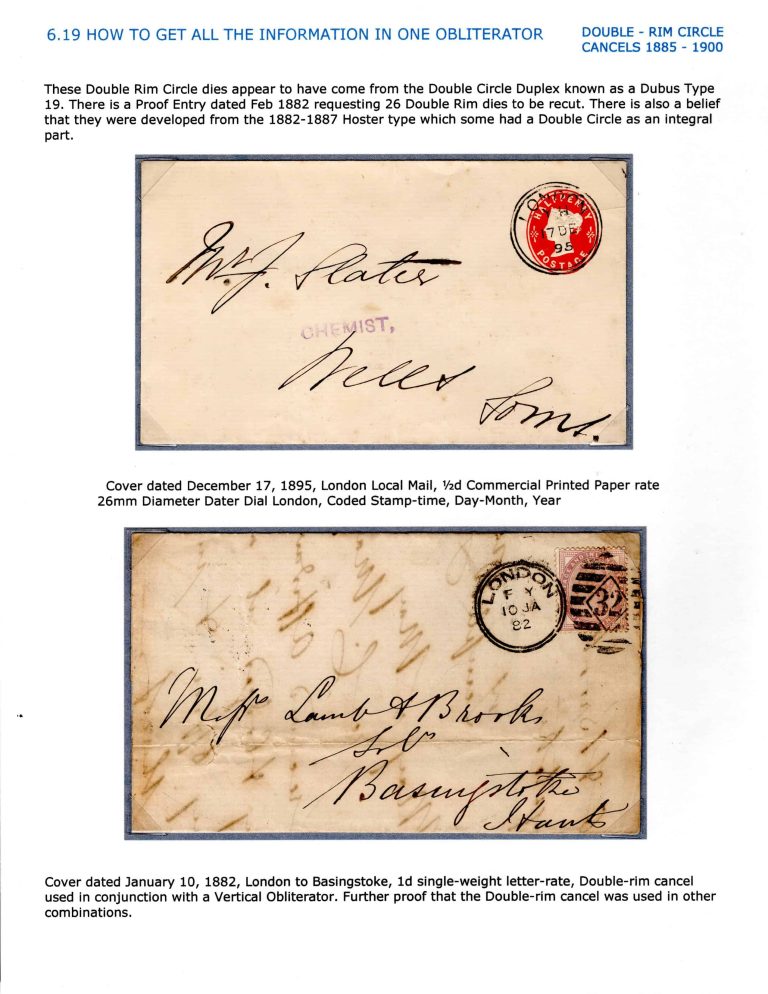 6.19 HOW TO GET ALL THE INFORMATION IN ONE OBLITERATOR
DOUBLE - RIM CIRCLE
CANCELS 1885 - 1900
These Double Rim Circle dies appear to have come from the Double Circle Duplex known as a Dubus Type
19. There is a Proof Entry dated Feb 1882 requesting 26 Double Rim dies to be recut. There is also a belief
that they were developed from the 1882-1887 Hoster type which some had a Double Circle as an integral
part.
LONDON
17 DE
95
HALFPENNY
POSTAGE
Mr. J. Slater
CHEMIST,
Wells
Soms.
Cover dated December 17, 1895, London Local Mail, ½d Commercial Printed Paper rate
26mm Diameter Dater Dial London, Coded Stamp-time, Day-Month, Year
LONDON
F Y
10 JA
82
32
Messrs Lamb & Brooks
Solrs
Basingstoke
Hants
Cover dated January 10, 1882, London to Basingstoke, 1d single-weight letter-rate, Double-rim cancel
used in conjunction with a Vertical Obliterator. Further proof that the Double-rim cancel was used in other
combinations.